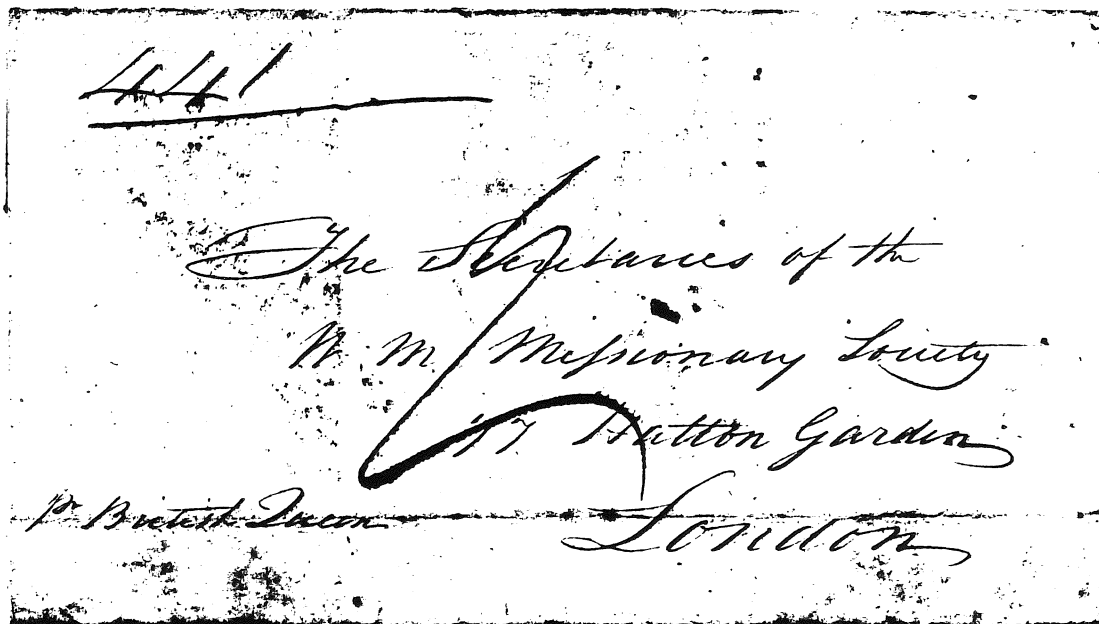 441
The Secretaries of the
W M Missionary Society
77 Hatton Garden
London
pr British Queen